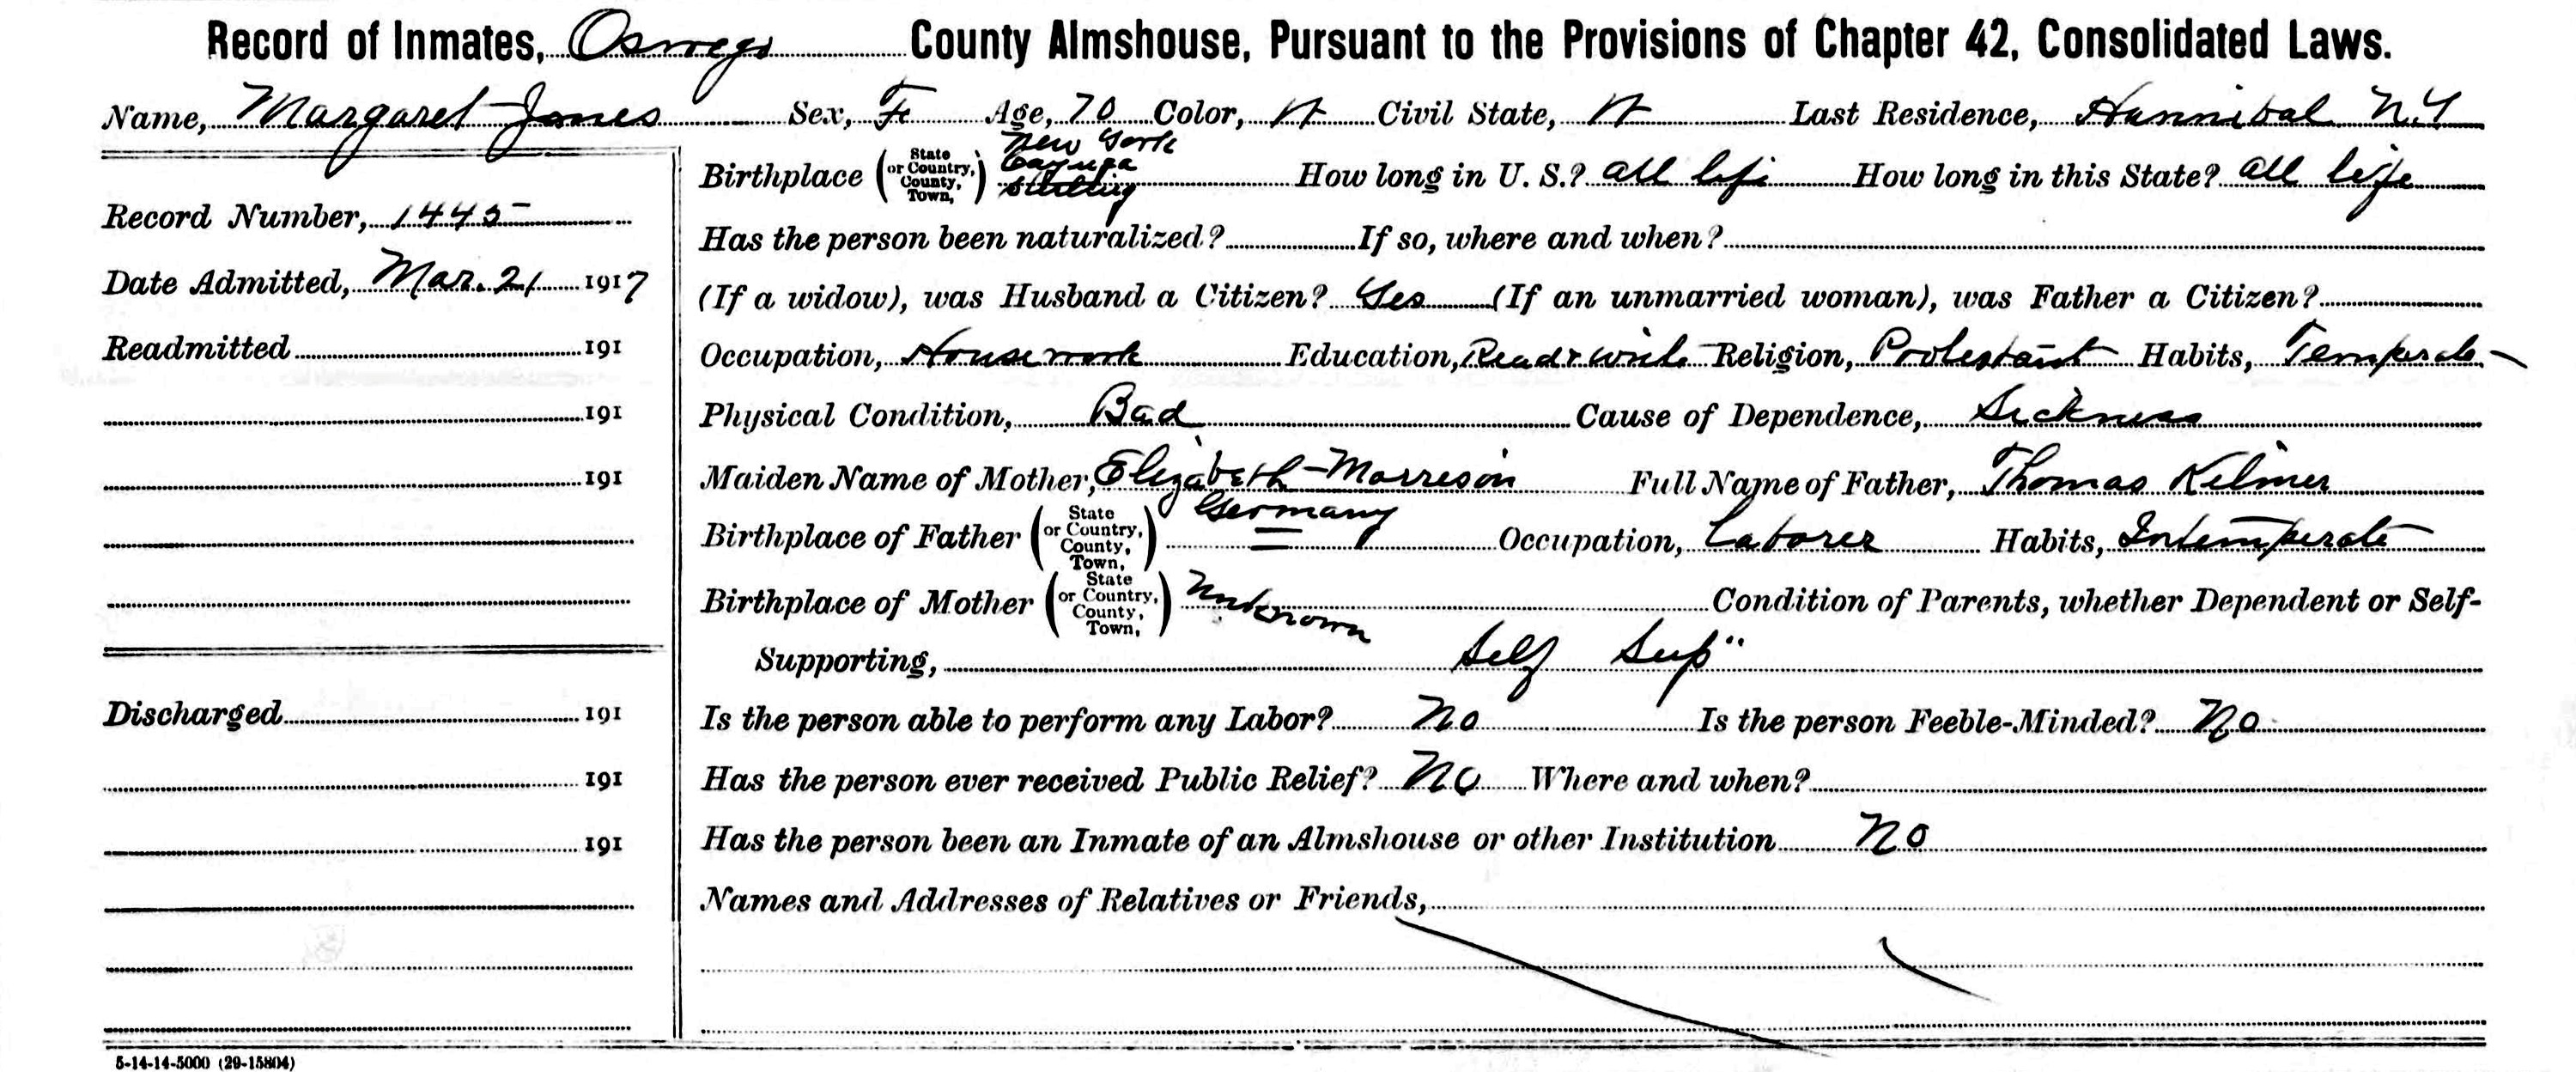 Record of Inmates, Oswego County Almshouse, Pursuant to the Provisions of Chapter 42, Consolidated Laws.
Name, Margaret Jones Sex, Fe Age, 70 Color, W Civil State, W Last Residence, Hannibal N.Y
Record Number, 1445
Date Admitted, Mar. 21 1917
Readmitted 191
191
191
Discharged 191
191
191
Birthplace (State or Country, County, Town,) New York Cayuga Sterling How long in U. S.? all life How long in this State? all life
Has the person been naturalized? If so, where and when?
(If a widow), was Husband a Citizen? Yes (If an unmarried woman), was Father a Citizen?
Occupation, Housework Education, Read & write Religion, Protestant Habits, Temperate
Physical Condition, Bad Cause of Dependence, Sickness
Maiden Name of Mother, Elizabeth Morreson Full Name of Father, Thomas Kilmer
Birthplace of Father (State or Country, County, Town,) Germany Occupation, Laborer Habits, Intemperate
Birthplace of Mother (State or Country, County, Town,) Unknown Condition of Parents, whether Dependent or Self-
Supporting, Self Sup"
Is the person able to perform any Labor? No Is the person Feeble-Minded? No
Has the person ever received Public Relief? No Where and when?
Has the person been an Inmate of an Almshouse or other Institution No
Names and Addresses of Relatives or Friends,
5-14-14-5000 (29-15804)